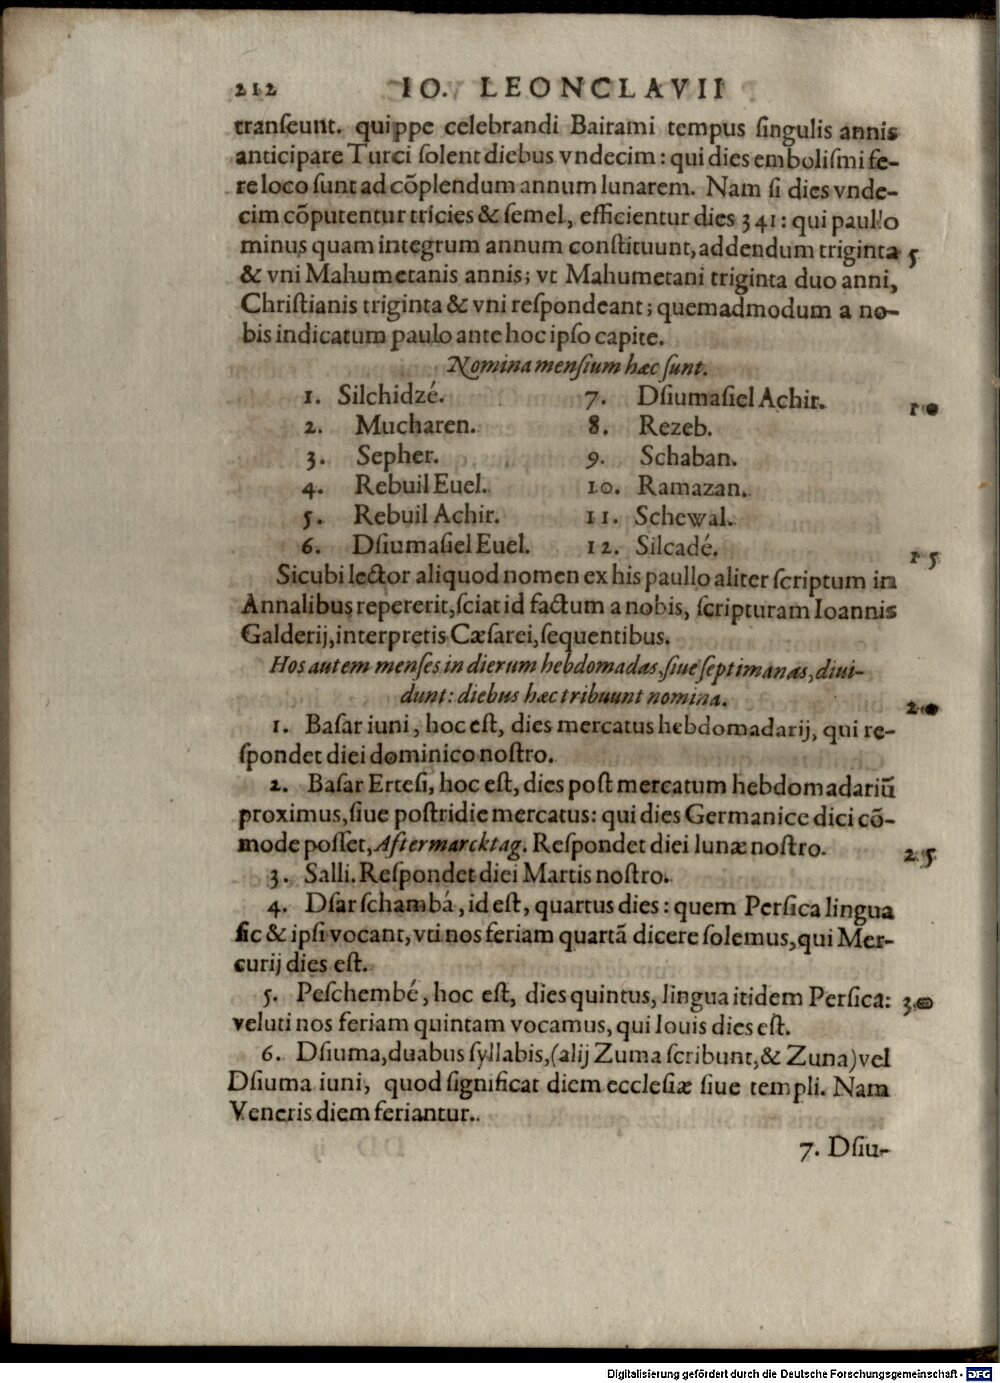 212 IO. LEONCLAVII
tranſeunt. quippe celebrandi Bairami tempus ſingulis annis
anticipare Turci ſolent diebus vndecim: qui dies emboliſmi fe-
re loco ſunt ad cõplendum annum lunarem. Nam ſi dies vnde-
cim cõputentur tricies & ſemel, efficientur dies 341: qui paullo
minus quam integrum annum conſtituunt, addendum triginta 5
& vni Mahumetanis annis; vt Mahumetani triginta duo anni,
Chriſtianis triginta & vni reſpondeant; quemadmodum a no-
bis indicatum paulo ante hoc ipſo capite.
Nomina menſium hæc ſunt.
1. Silchidzé. 7. Dſiumaſiel Achir. 10
2. Mucharen. 8. Rezeb.
3. Sepher. 9. Schaban.
4. Rebuil Euel. 10. Ramazan.
5. Rebuil Achir. 11. Schewal.
6. Dſiumaſiel Euel. 12. Silcadé. 15
Sicubi lector aliquod nomen ex his paullo aliter ſcriptum in
Annalibus repererit, ſciat id factum a nobis, ſcripturam Ioannis
Galderij, interpretis Cæſarei, ſequentibus.
Hos autem menſes in dierum hebdomadas, ſiue ſeptimanas, diui-
dunt: diebus hæc tribuunt nomina. 20
1. Baſar iuni, hoc eſt, dies mercatus hebdomadarij, qui re-
ſpondet diei dominico noſtro.
2. Baſar Erteſi, hoc eſt, dies poſt mercatum hebdomadariũ
proximus, ſiue poſtridie mercatus: qui dies Germanice dici cõ-
mode poſſet, Aftermarcktag. Reſpondet diei lunæ noſtro. 25
3. Salli. Reſpondet diei Martis noſtro.
4. Dſarſchambá, id eſt, quartus dies: quem Perſica lingua
ſic & ipſi vocant, vti nos feriam quartã dicere ſolemus, qui Mer-
curij dies eſt.
5. Peſchembé, hoc eſt, dies quintus, lingua itidem Perſica: 30
veluti nos feriam quintam vocamus, qui Iouis dies eſt.
6. Dſiuma, duabus ſyllabis, (alij Zuma ſcribunt, & Zuna) vel
Dſiuma iuni, quod ſignificat diem eccleſiæ ſiue templi. Nam
Veneris diem feriantur.
7. Dſiu-
Digitalisierung gefördert durch die Deutsche Forschungsgemeinschaft - DFG